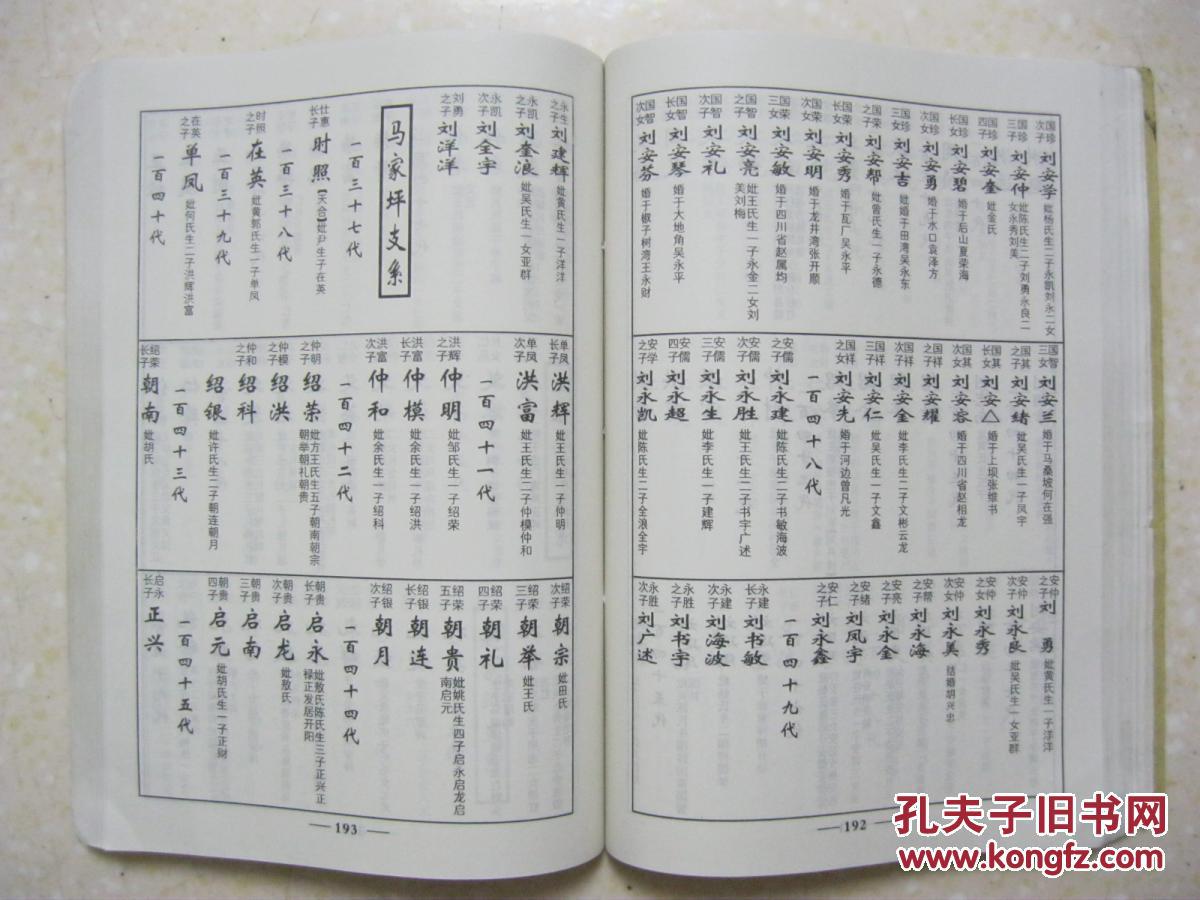 国珍次子 刘安学 妣杨氏生二子永凯刘永二女
国珍三子 刘安仲 妣陈氏生二子刘勇永良二女永秀刘美
国珍四子 刘安奎 妣金氏
国珍长女 刘安碧 婚于后山夏荣海
国珍次女 刘安勇 婚于水口袁泽方
国珍三女 刘安吉 妣婚于田湾吴永东
国荣之子 刘安帮 妣曾氏生一子永德
国荣长女 刘安秀 婚于瓦厂吴永平
国荣次女 刘安明 婚于龙井湾张开顺
国荣三女 刘安敏 婚于四川省赵属均
国智之子 刘安亮 妣王氏生一子永金二女刘美刘梅
国智之子 刘安礼
国智长女 刘安琴 婚于大地角吴永平
国智次女 刘安芬 婚于椒子树湾王永财
国智三女 刘安兰 婚于马桑坡何在强
国其之子 刘安绪 妣吴氏生一子凤宇
国其长女 刘安△ 婚于上坝张维书
国其次女 刘安容 婚于四川省赵相龙
国祥之子 刘安耀
国祥次子 刘安金 妣李氏生二子文彬云龙
国祥三子 刘安仁 妣吴氏生一子文鑫
国祥之女 刘安先 婚于河边曾凡光
一百四十八代
安儒之子 刘永建 妣陈氏生二子书敏海波
安儒次子 刘永胜 妣王氏生二子书宇广述
安儒三子 刘永生 妣李氏生一子建辉
安儒四子 刘永超
安学之子 刘永凯 妣陈氏生二子全浪全宇
安仲之子 刘勇 妣黄氏生一子洋洋
安仲次子 刘永良 妣吴氏生一女亚群
安仲之女 刘永秀
安仲次女 刘永美 结婚胡兴忠
安帮之子 刘永海
安亮之子 刘永金
安绪之子 刘凤宇
安仁之子 刘永鑫
一百四十九代
永建长子 刘书敏
永建次子 刘海波
永胜之子 刘书宇
永胜次子 刘广述
192
永生之子 刘建辉 妣黄氏生一子洋洋
永凯之子 刘奎浪 妣吴氏生一女亚群
永凯次子 刘全宇
刘勇之子 刘洋洋
马家坪支系
一百三十七代
仕惠长子 时照【天合】妣尹生子在英
一百三十八代
时照之子 在英 妣黄郭氏生一子单凤
一百三十九代
在英之子 单凤 妣何氏生二子洪辉洪富
一百四十代
单凤长子 洪辉 妣王氏生一子仲明
单凤次子 洪富 妣王氏生二子仲模仲和
一百四十一代
洪辉之子 仲明 妣邹氏生一子绍荣
洪富长子 仲模 妣余氏生一子绍洪
洪富次子 仲和 妣余氏生一子绍科
一百四十二代
仲明之子 绍荣 妣方王氏生五子朝南朝宗朝举朝礼朝贵
仲模之子 绍洪
仲和之子 绍科
绍银 妣许氏生二子朝连朝月
一百四十三代
绍荣长子 朝南 妣胡氏
绍荣次子 朝宗 妣田氏
绍荣三子 朝举 妣王氏
绍荣四子 朝礼
绍荣五子 朝贵 妣姚氏生四子启永启龙启南启元
绍银长子 朝连
绍银次子 朝月
一百四十四代
朝贵长子 启永 妣敖氏陈氏生三子正兴正禄正发居开阳
朝贵次子 启龙 妣敖氏
朝贵三子 启南
朝贵四子 启元 妣胡氏生一子正财
一百四十五代
启永长子 正兴
193
孔夫子旧书网
www.kongfz.com